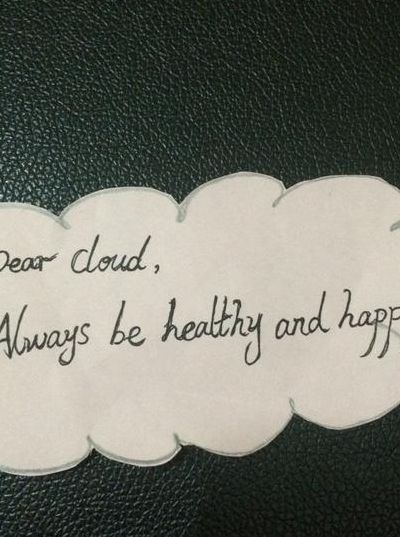 Dear cloud,
Always be healthy and happ